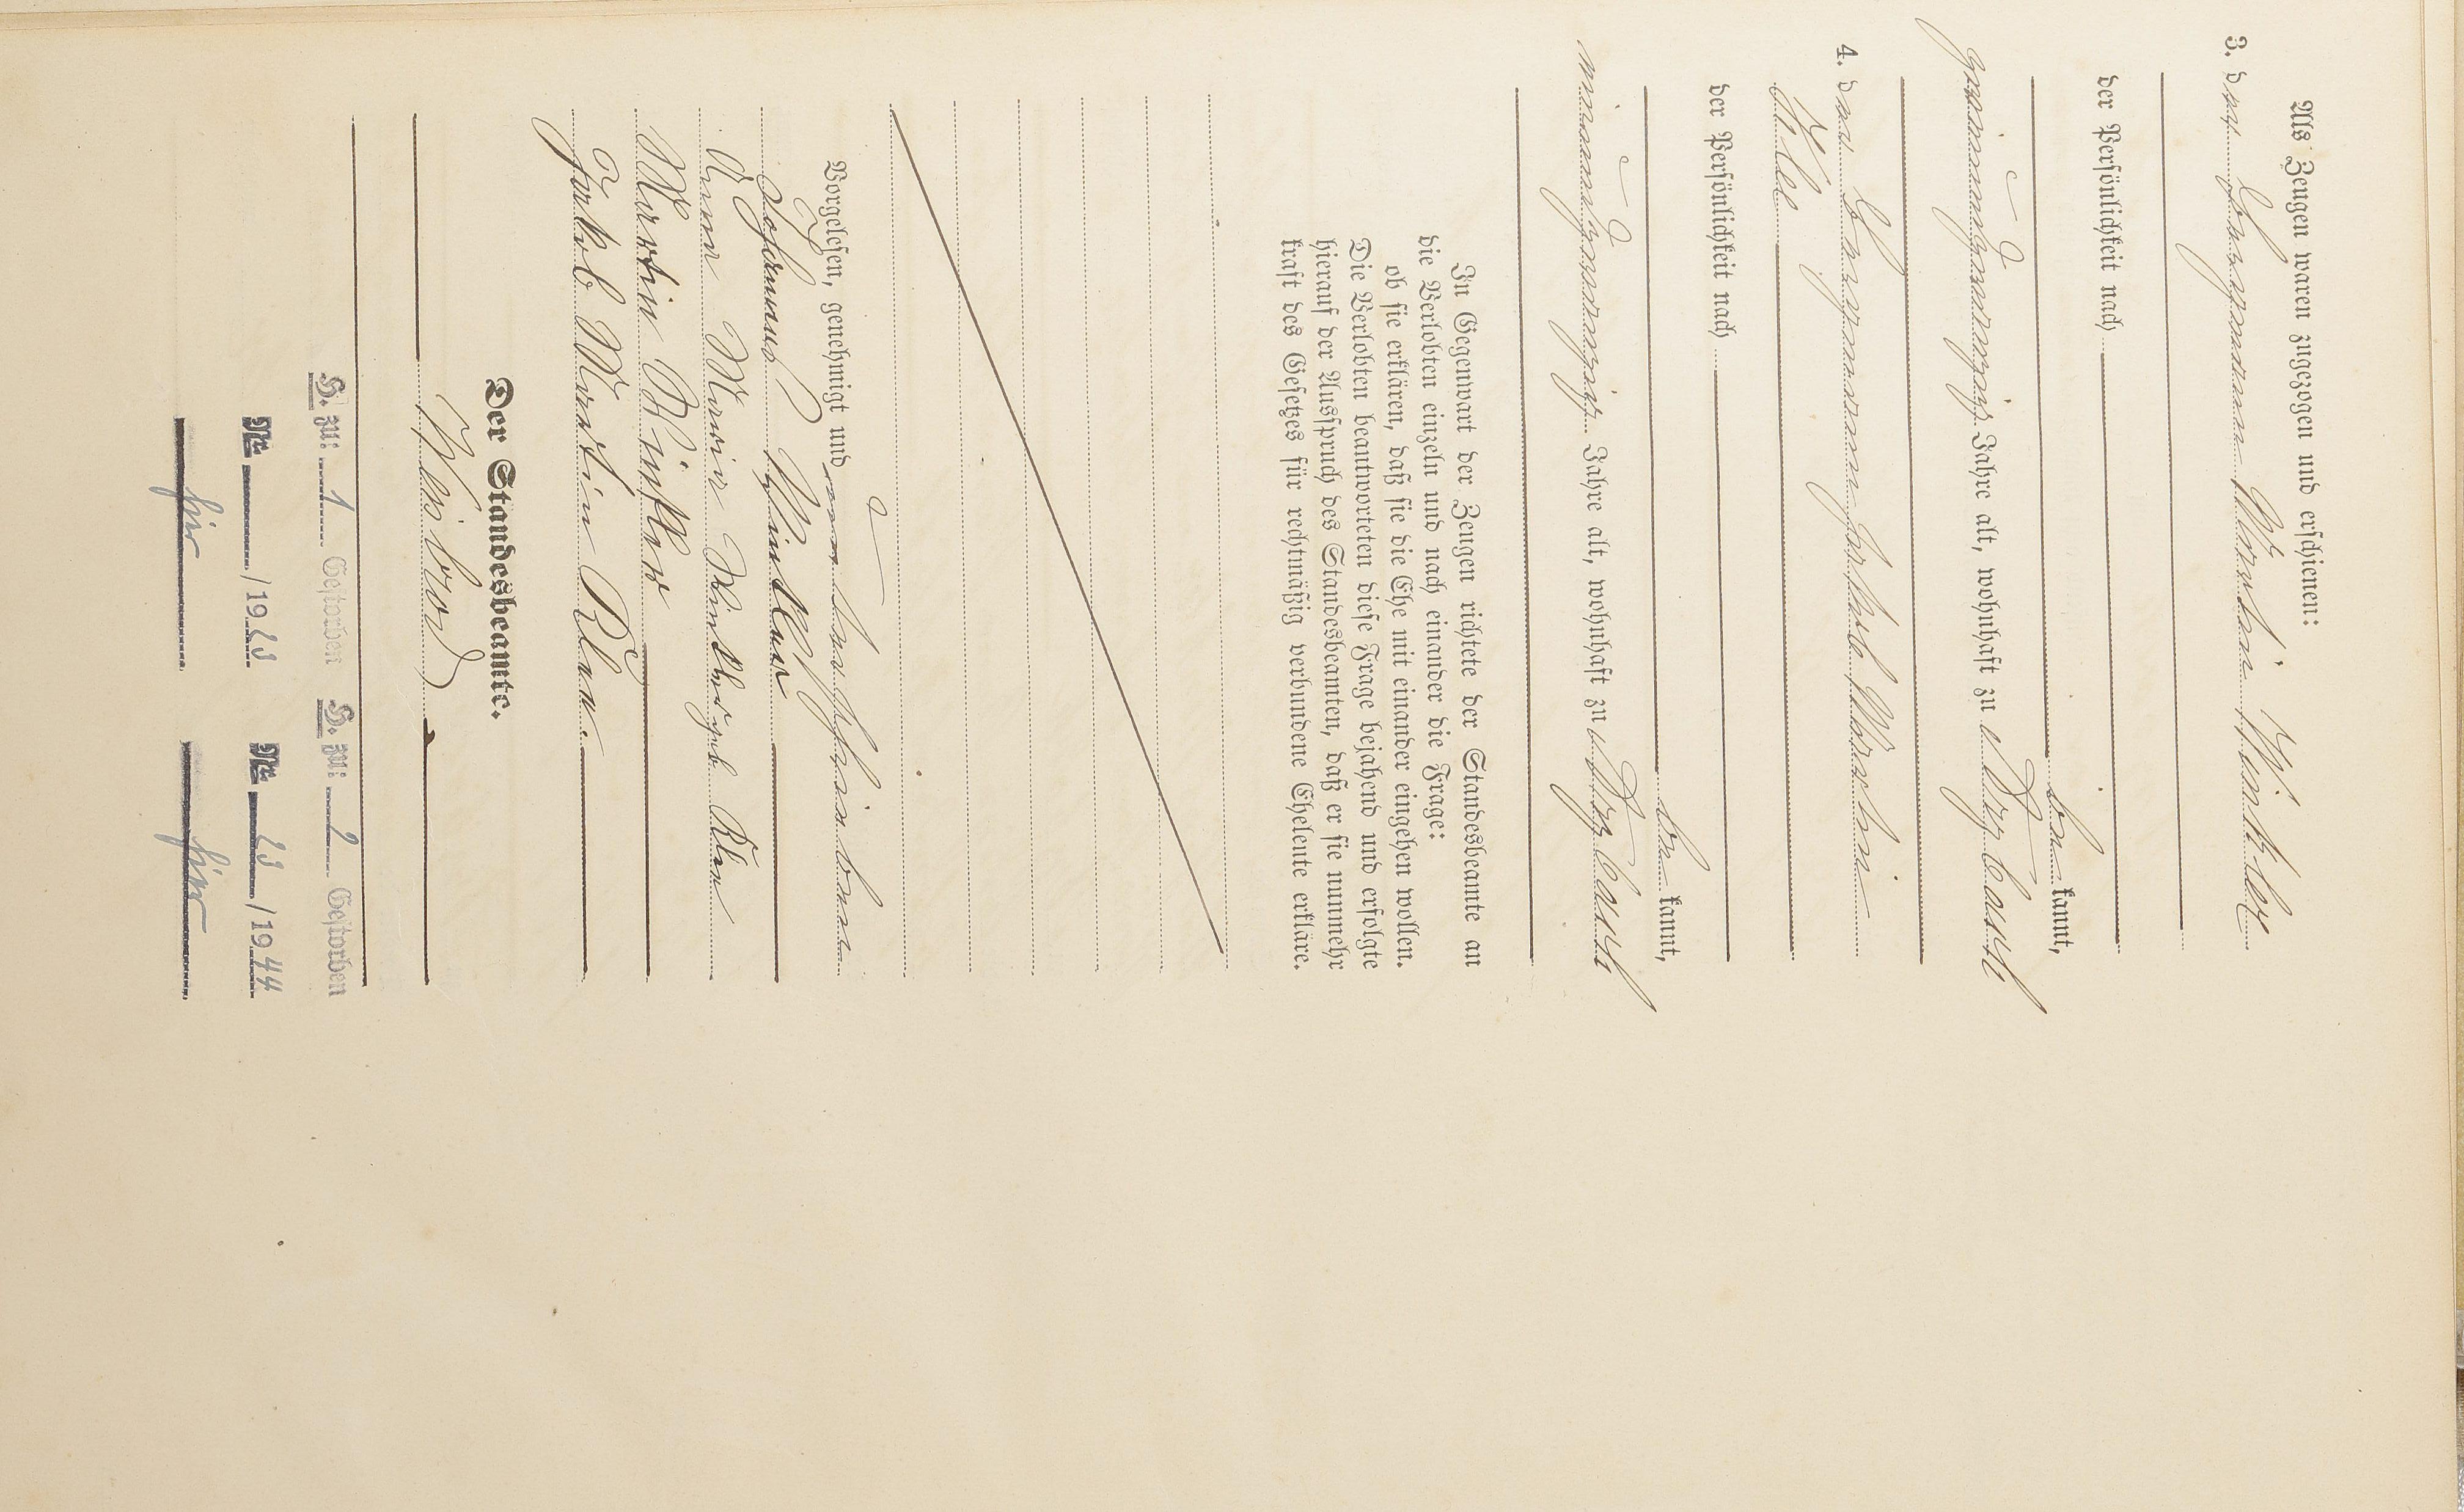 Als Zeugen waren zugezogen und erschienen:
3. der Bergmann Martin Winkler
der Persönlichkeit nach
be kannt,
zweiundzwanzig Jahre alt, wohnhaft zu
4. der Bergmann Jakob Martin
Klee
der Persönlichkeit nach
be kannt,
neunundzwanzig Jahre alt, wohnhaft zu
In Gegenwart der Zeugen richtete der Standesbeamte an
die Verlobten einzeln und nach einander die Frage:
ob sie erklären, daß sie die Ehe mit einander eingehen wollen.
Die Verlobten beantworteten diese Frage bejahend und erfolgte
hierauf der Ausspruch des Standesbeamten, daß er sie nunmehr
kraft des Gesetzes für rechtmäßig verbundene Eheleute erkläre.
Vorgelesen, genehmigt und unterschrieben
Johannes Winkler
Anna Maria Winkler geb Klee
Martin Winkler
Jakob Martin Klee.
Der Standesbeamte.
H. zu: 1 Gestorben H. zu: 2 Gestorben
Nr /19 Nr 23/1944
hier hier